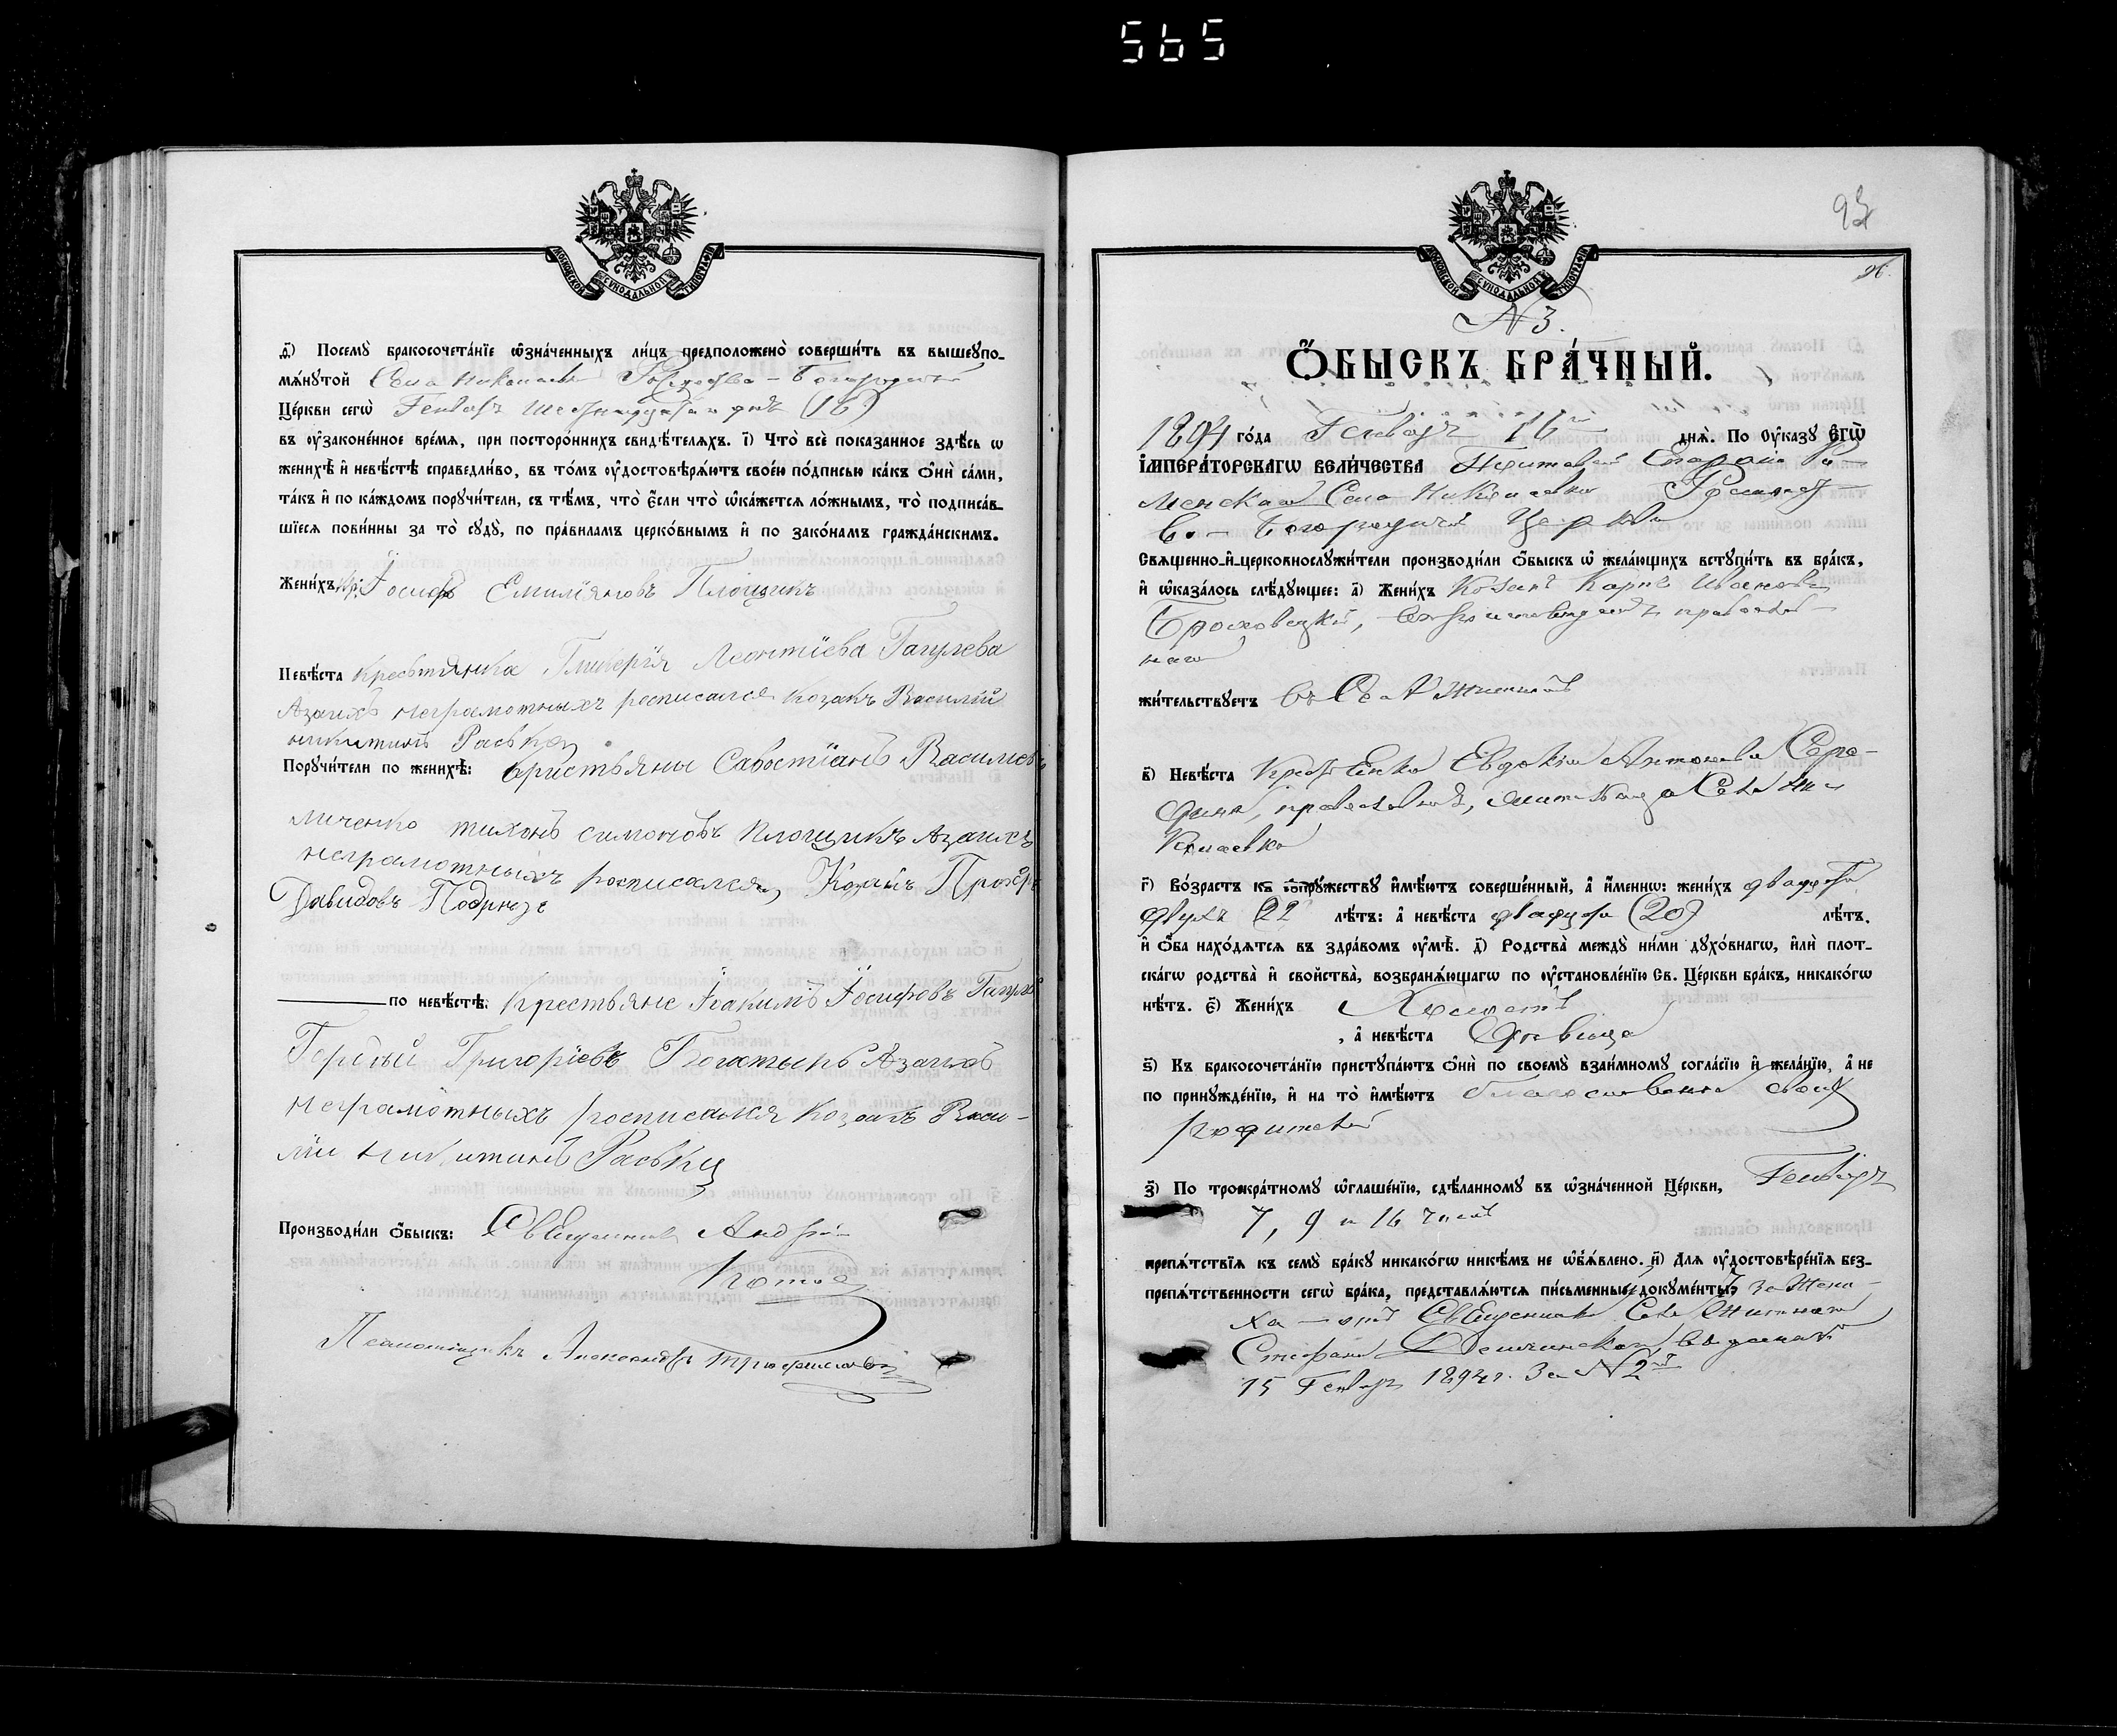 565
МОСКОВСКОЙ СѴНОДАЛЬНОЙ ТИПОГРАФІИ
д҃і) Посемꙋ̀ бракосочета́нїе ѡ҆зна́ченныхъ ли́цъ предположено̀ соверши́ть въ вышеꙋпо-
мѧ́нꙋтой Села Николаевки Рождество-Богородичной
Це́ркви сегѡ̀ Генваря шестнадцатаго дня (16)
въ ᲂу҆зако́ненное вре́мѧ, при посторо́ннихъ свидѣ́телѧхъ. і҃) Что̀ всѐ показанное здѣ́сь ѡ
женихѣ̀ и҆ невѣ́стѣ справедли́во, въ то́мъ ᲂу҆достовѣрѧ́ютъ свое́ю по́дписью ка́къ ѻ҆нѝ са́ми,
та́къ и҆ по ка́ждомъ порꙋчи́тели, съ тѣ́мъ, что̀ є҆́сли что̀ ѡ҆ка́жетсѧ ло́жнымъ, то̀ подписа́в-
шїесѧ пови́нны за то̀ сꙋдꙋ̀, по пра́виламъ церко́внымъ и҆ по зако́намъ гражда́нскимъ.
Жени́хъ кр: Іосифъ Емиліяновъ Площикъ
Невѣ́ста крестьянка Гликерія Леонтіева Гагулева
Азаихъ неграмотныхъ росписался козакъ Василій
никитинъ Раська
Порꙋчи́тели по женихѣ̀: кристьяны Савостіанъ Василіевъ
личенко тихонъ симоновъ площикъ Азаихъ
неграмотныхъ росписался Козакъ Прохоръ
Давидовъ
по невѣ́стѣ: крестьяне Іоакимъ Іосифовъ
Григоріевъ Богатырь Азаихъ
неграмотныхъ росписался козакъ Васи-
лій никитинъ Раська
Производи́ли ѻ҆́быскъ: Священникъ Андрей
Псаломщикъ Александръ
МОСКОВСКОЙ СѴНОДАЛЬНОЙ ТИПОГРАФІИ
26.
N 3.
Ѻ҆́БЫСКЪ БРА́ЧНЫЙ.
1894 го́да Генваря 16го днѧ̀. По ᲂу҆ка́зꙋ Є҆ГѠ̀
І҆МПЕРА́ТОРСКАГѠ ВЕЛИ́ЧЕСТВА Полтавской Епархіи Ро-
менскаго Села Николаевки Рождест-
во-Богородичной Церкви
Свѧщенно-и҆-церковнослꙋжи́тели производи́ли ѻ҆́быскъ ѡ҆ жела́ющихъ встꙋпи́ть въ бра́къ,
и҆ ѡ҆каза́лось слѣ́дꙋющее: а҃) Жени́хъ Козакъ Карпъ Ивановъ
Броховецкій, вѣроисповѣданія православ-
наго
жи́тельствꙋетъ въ С.
в҃) Невѣ́ста Крестьянка Евдокія Антонова Сере-
дина, православнаго, жительств. Села Ни-
колаевки
г҃) Во́зрастъ къ сꙋпрꙋ́жествꙋ и҆мѣ́ютъ соверше́нный, а҆ и҆́менно: жени́хъ двадцать
двухъ (22 лѣ́тъ: а҆ невѣ́ста двадцати (20) лѣ́тъ.
и҆ ѻ҆́ба нахо́дѧтсѧ въ здра́вомъ ᲂу҆мѣ̀. д҃) Родства̀ междꙋ̀ ни́ми дꙋхо́внагѡ, и҆лѝ плот-
ска́гѡ родства̀ и҆ свойства̀, возбранѧ́ющагѡ по ᲂу҆становле́нїю Св. Це́ркви бра́къ, никако́гѡ
нѣ́тъ. є҃) Жени́хъ Холостъ
, а҆ невѣ́ста Дѣвица
ѕ҃) Къ бракосочета́нїю пристꙋпа́ютъ ѻ҆нѝ по своемꙋ̀ взаи́мномꙋ согла́сїю и҆ жела́нїю, а҆ не
по принꙋжде́нїю, и҆ на то̀ и҆мѣ́ютъ благословеніе своихъ
родителей
з҃) По троекра́тномꙋ ѡ҆глаше́нїю, сдѣ́ланномꙋ въ ѡ҆зна́ченной Це́ркви, Генваря
7, 9 и 16 чиселъ
препѧ́тствїѧ къ семꙋ̀ бра́кꙋ никако́гѡ никѣ́мъ не ѡ҆б̾ѧ́влено. и҃) Для ᲂу҆достовѣре́нїѧ без-
препѧ́тственности сегѡ̀ бра́ка, представлѧ́ютсѧ пи́сьменные докꙋме́нты: за жени-
ха - отъ Священника Села
Стефана выданный
15 Генваря 1894 г. За N 2мъ